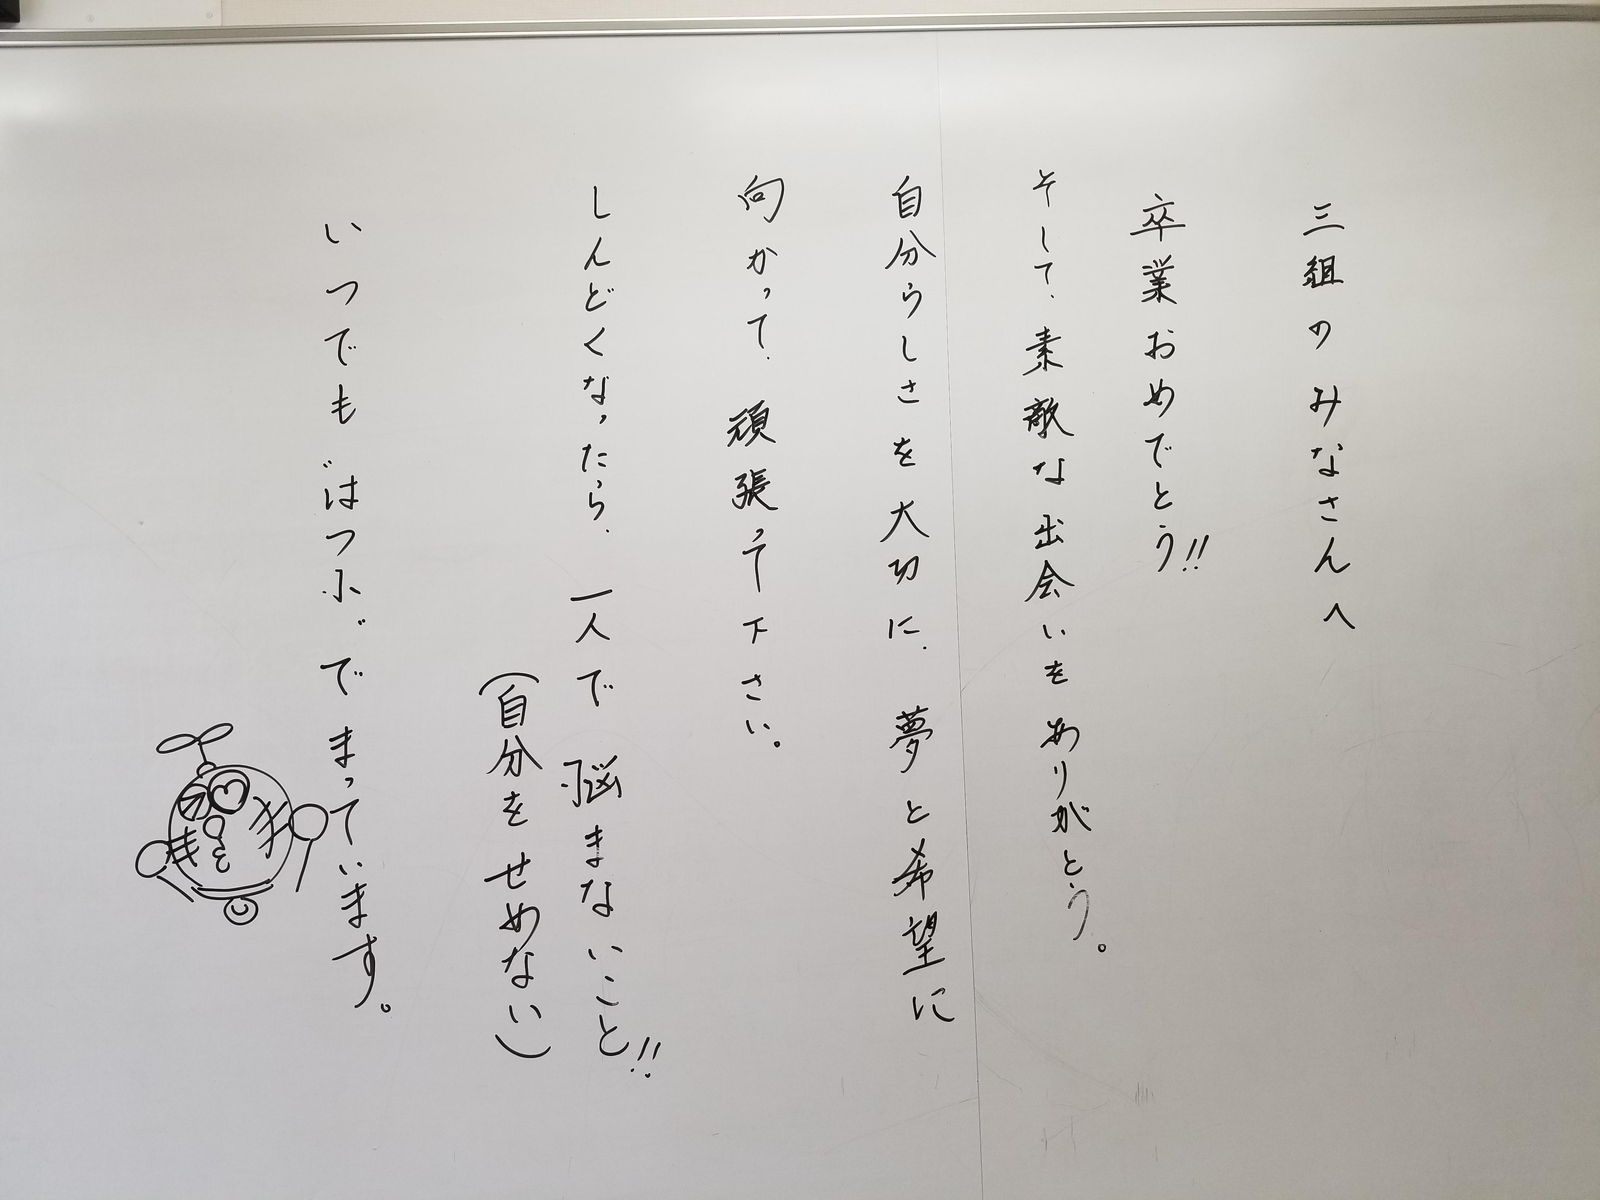 三組のみなさんへ
卒業おめでとう!!
そして、素敵な出会いをありがとう。
自分らしさを大切に、夢と希望に
向かって、頑張って下さい。
しんどくなったら、一人で悩まないこと!!
(自分をせめない)
いつでも"はつふ"でまっています。